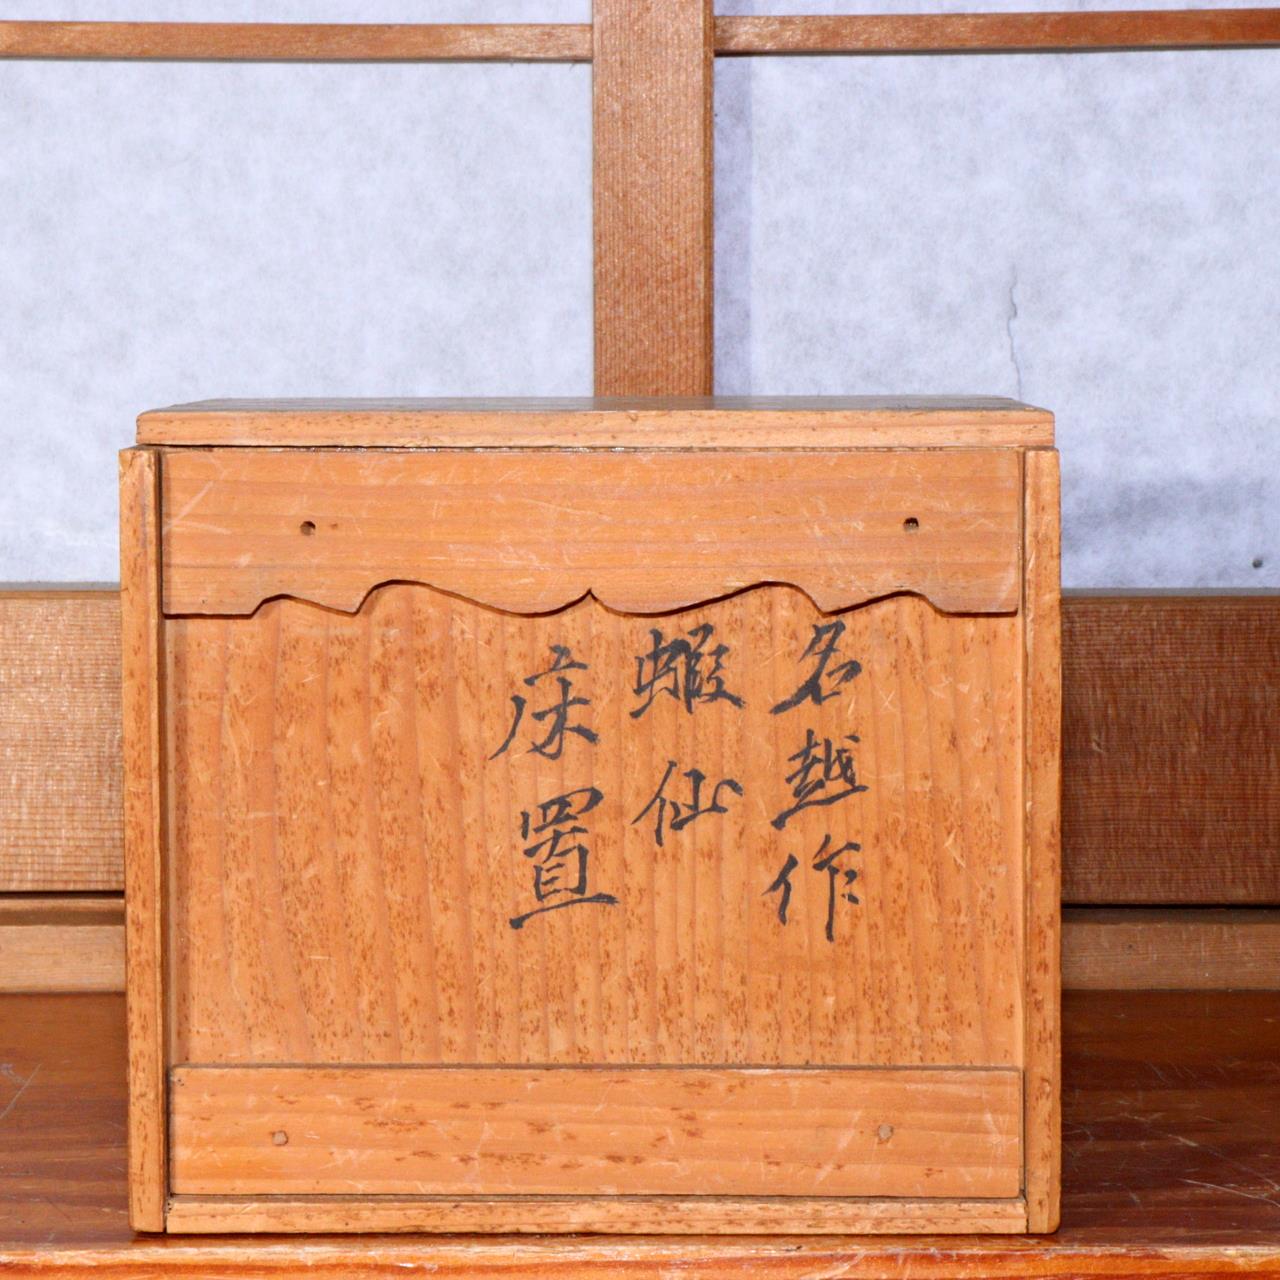 名越作
蝦仙
床置